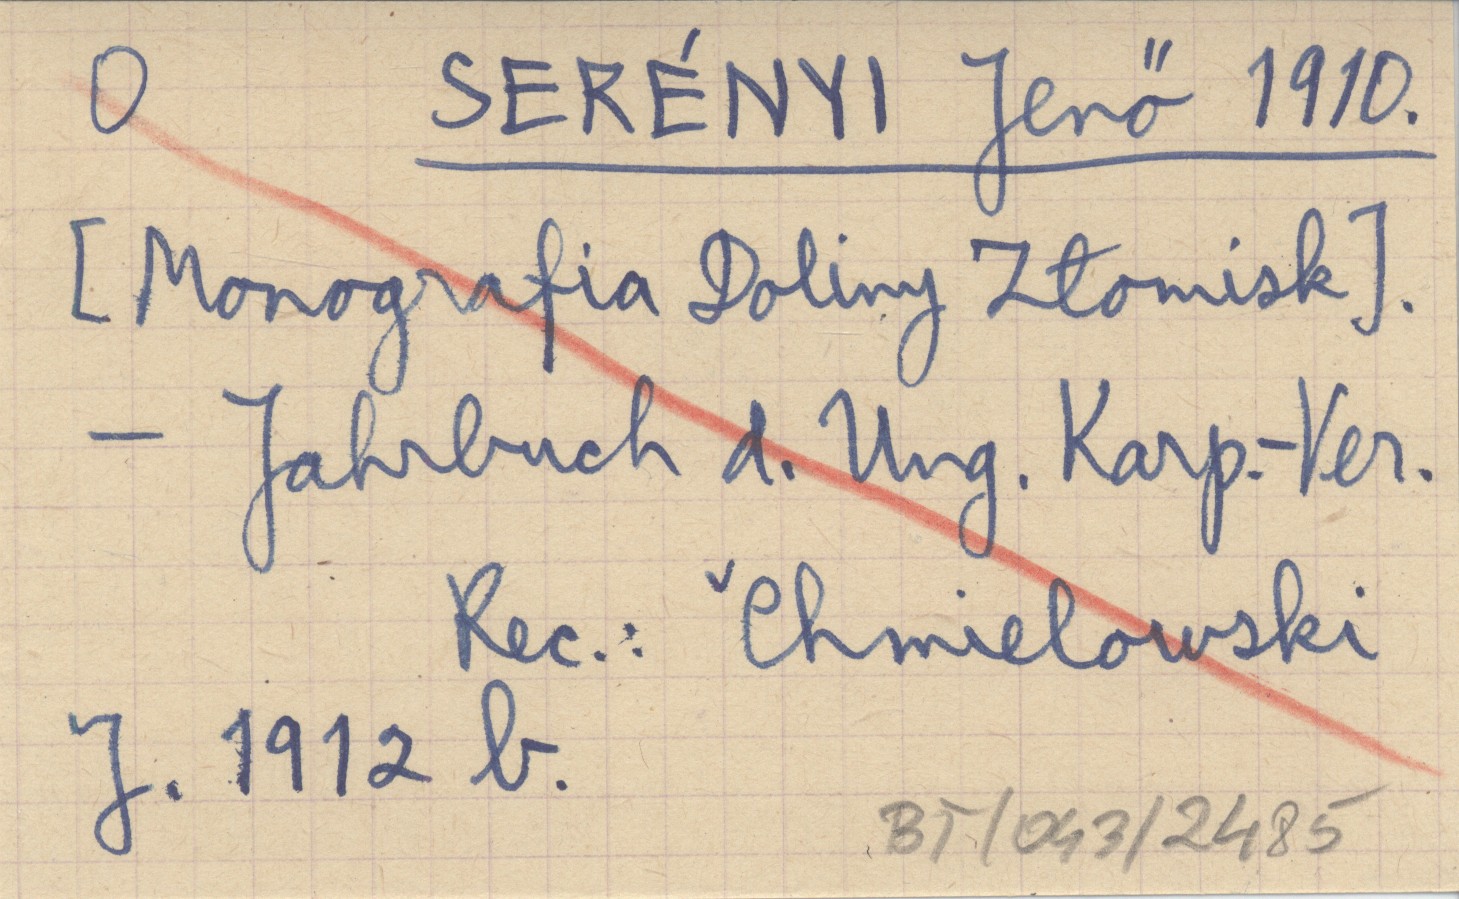 O SERÉNYI Jenő 1910.
[Monografia Doliny Złomisk].
— Jahrbuch d. Ung. Karp.-Ver.
Rec.: ˇChmielowski
J. 1912 b.
BT/043/2485